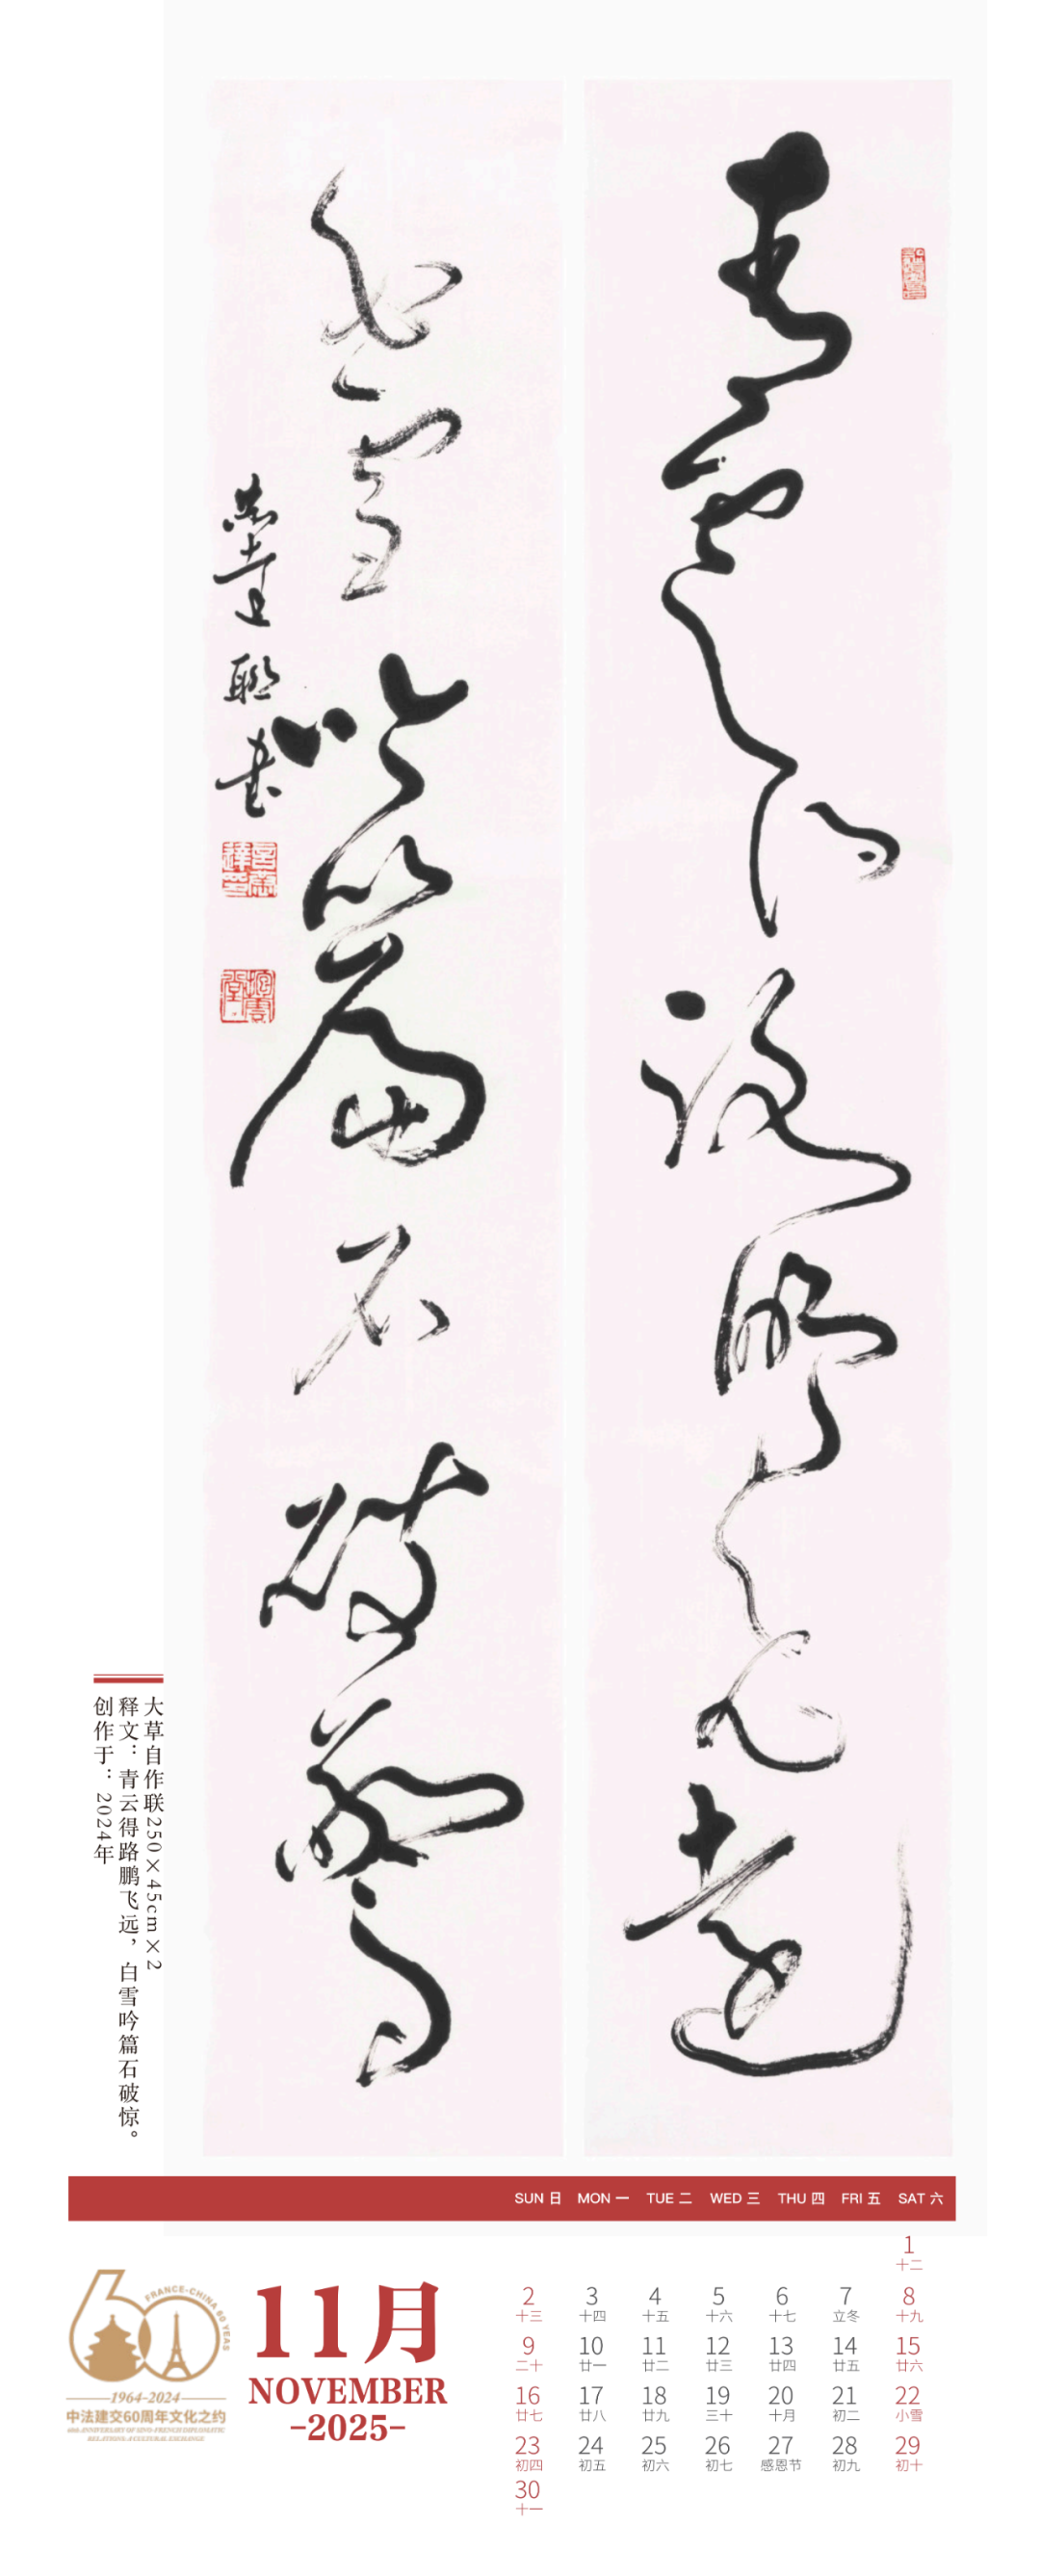 青云得路鹏飞远
白雪吟篇石破惊
崇堂联书
大草自作联250×45cm×2
释文：青云得路鹏飞远，白雪吟篇石破惊。
创作于：2024年
SUN 日 MON 一 TUE 二 WED 三 THU 四 FRI 五 SAT 六
60
FRANCE-CHINA 60 YEAS
1964-2024
中法建交60周年文化之约
60th ANNIVERSARY OF SINO-FRENCH DIPLOMATIC
RELATIONS: A CULTURAL EXCHANGE
11月
NOVEMBER
-2025-
1
十二
2 3 4 5 6 7 8
十三 十四 十五 十六 十七 立冬 十九
9 10 11 12 13 14 15
二十 廿一 廿二 廿三 廿四 廿五 廿六
16 17 18 19 20 21 22
廿七 廿八 廿九 三十 十月 初二 小雪
23 24 25 26 27 28 29
初四 初五 初六 初七 感恩节 初九 初十
30
十一